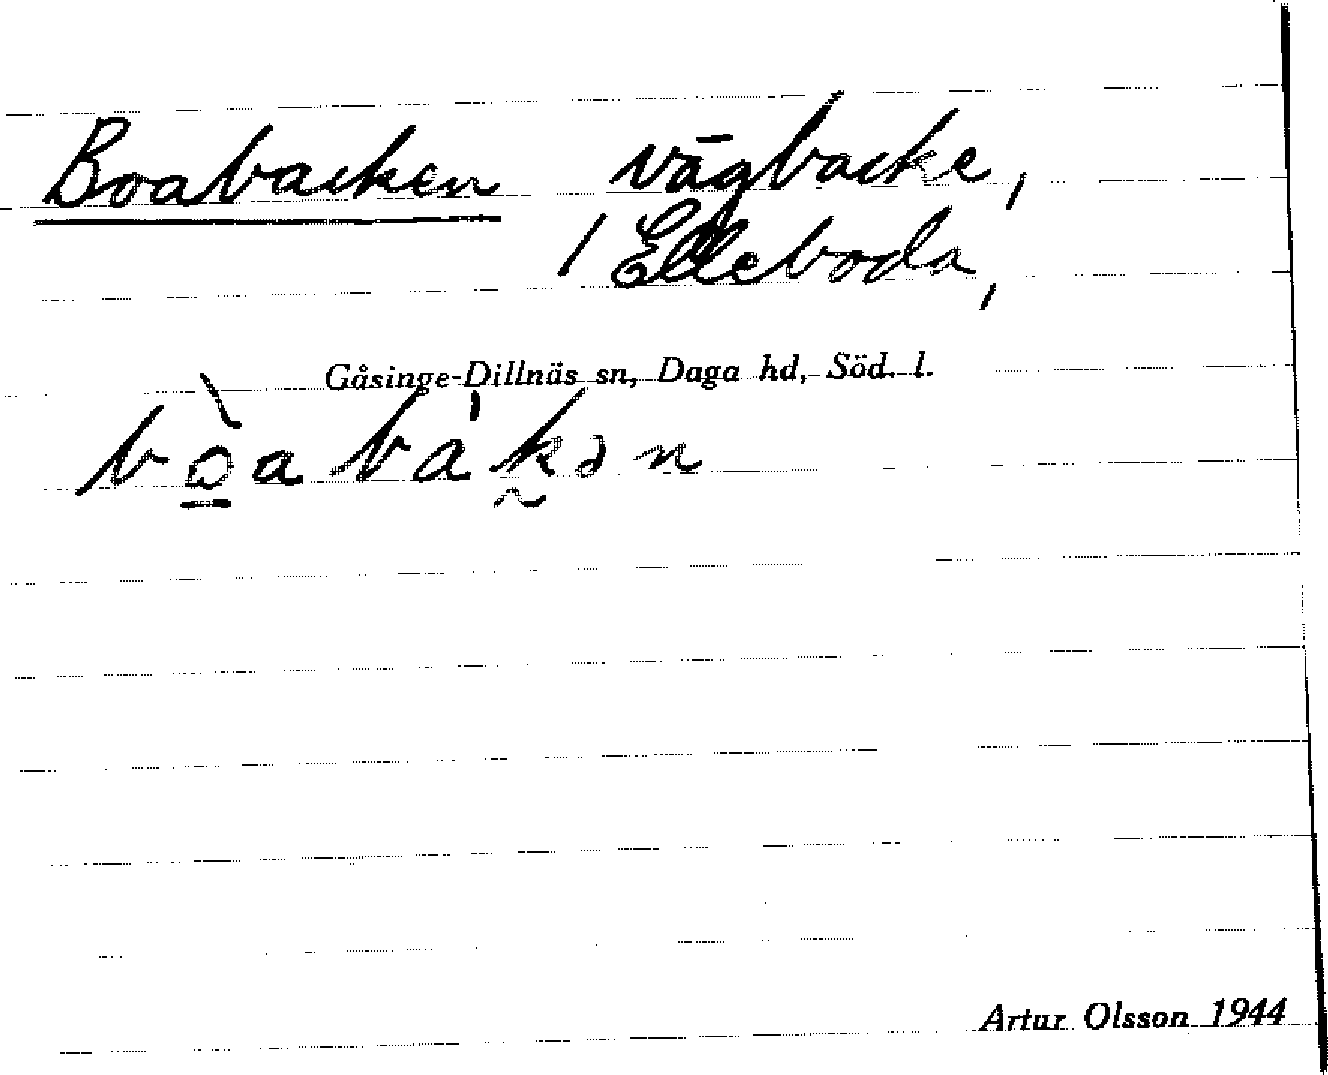 Boabacken vägbacke,
/ Elleboda,
Gåsinge-Dillnäs sn, Daga hd, Söd. l.
bò̲abákən
Artur Olsson 1944